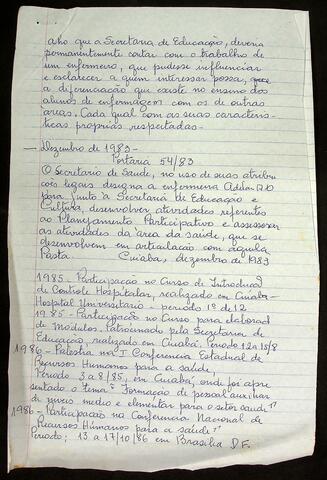 Acho que a Secretaria de Educação, deveria
permanentemente contar com o trabalho de
um enfermeiro, que pudesse influenciar
e esclarecer a quem interessar possa,
a diferenciação que existe no ensino dos
alunos de enfermagem com os de outras
areas. Cada qual com as suas caracterís-
ticas proprias respeitadas.
— Dezembro de 1983 -
Portaria 54/83
O Secretario de Saude, no uso de suas atribui
ções legais designa a enfermeira
para junto à Secretaria de Educação e
Cultura, desenvolver atividades referentes
ao Planejamento Participativo e assessorar
as atividades da área da saúde, que se
desenvolvem em articulação com aquela
Pasta. Cuiabá, dezembro de 1983
1985 - Participação no Curso de Introduçaõ
de Controle Hospitalar, realizado em Cuiabá
Hospital Universitario - periodo 1º de 12
1985 - Participação no Curso para elaboraçaõ
de Modulos. Patrocinado pela Secretaria de
Educação, realizado em Cuiabá. Periodo 12 a 15/8
1986 - Palestra na I Conferencia Estadual de
Recursos Humanos para a saúde,
Periodo 3 a 8/85, em Cuiabá, onde foi apre
sentado o tema "Formação de pessoal auxiliar
de niveis medio e elementar para o setor saúde"
1986 - Participação na Conferencia Nacional de
"Recursos Humanos para a saúde"
Periodo; 13 a 17/10/86 em Brasilia D.F.